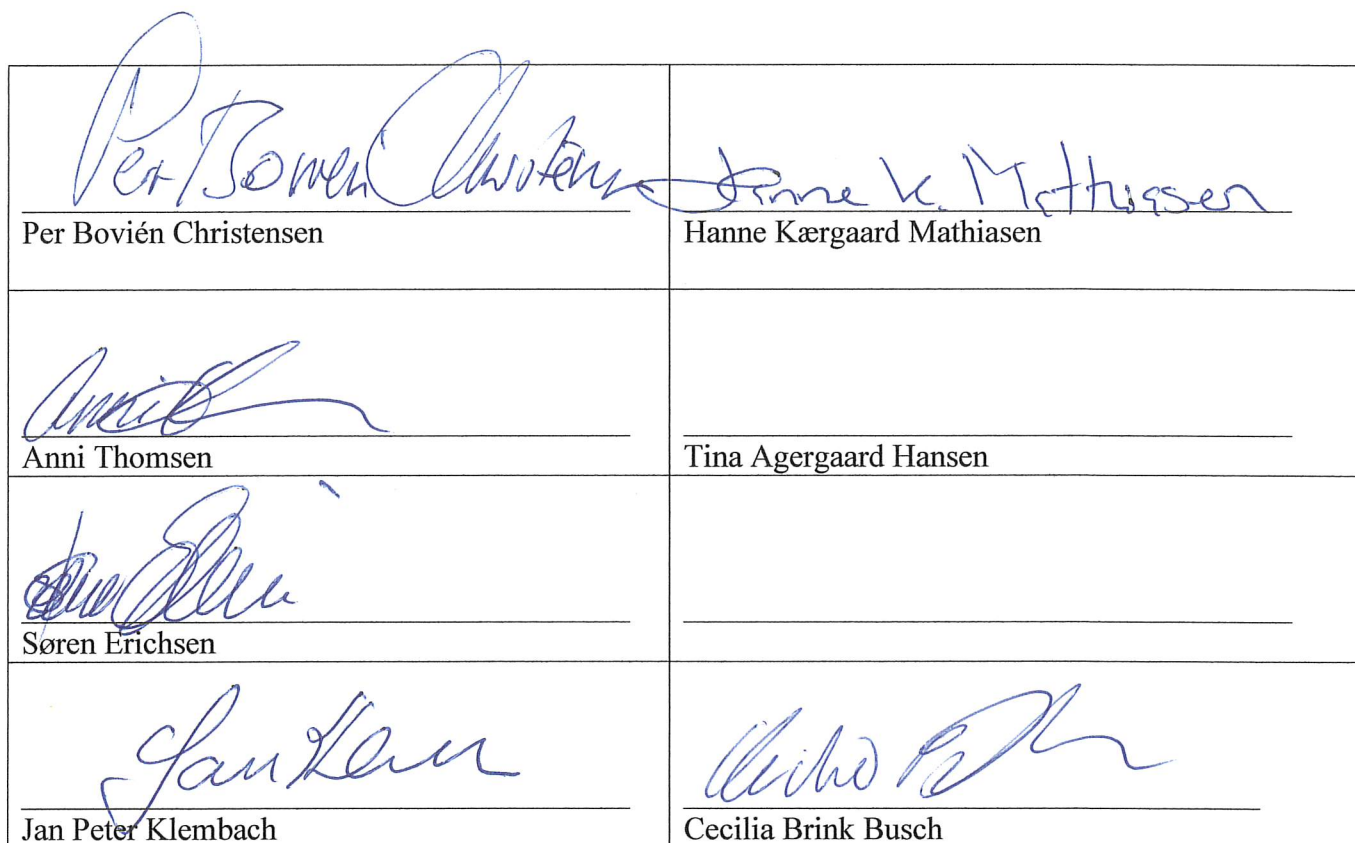 Per Bovien Christensen Hanne K. Mathiasen
Per Bovién Christensen Hanne Kærgaard Mathiasen
Anni
Anni Thomsen Tina Agergaard Hansen
Søren Erichsen
Jan Klem
Jan Peter Klembach Cecilia Brink Busch